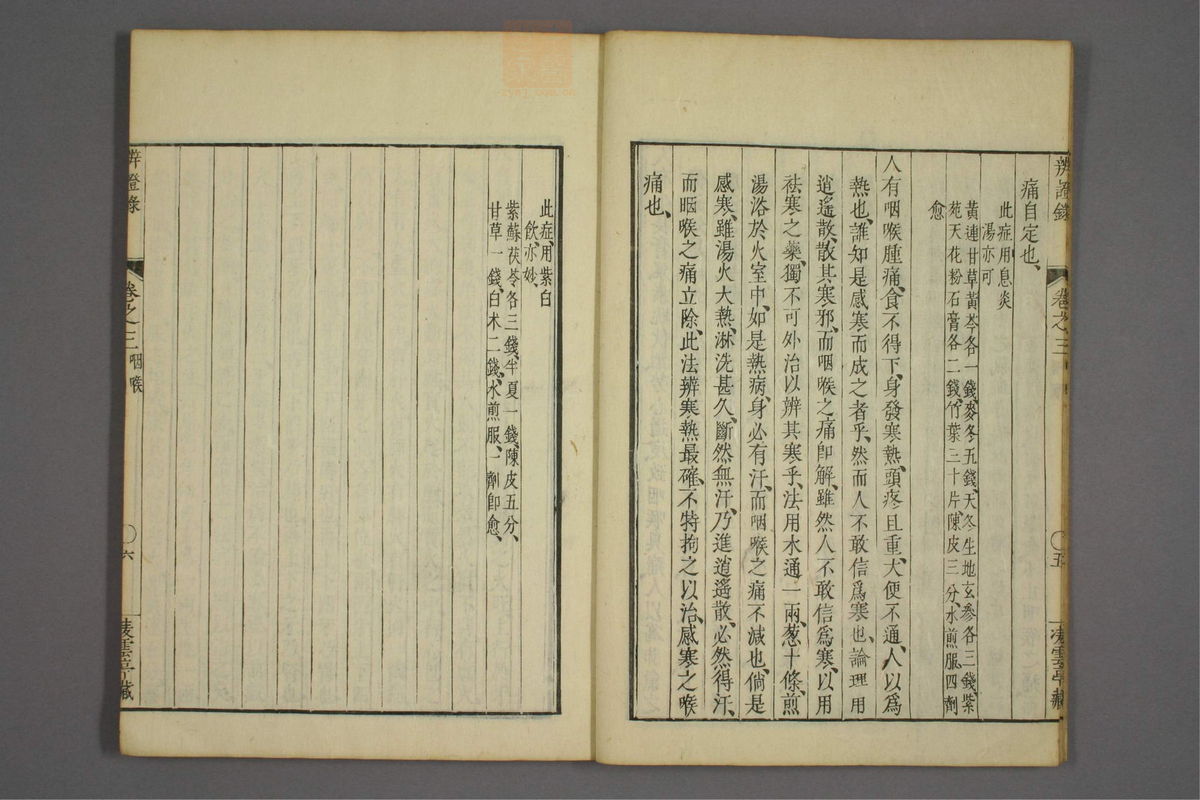 辨證錄 卷之三 五 凌雲亭藏
痛自定也、
此症用息炎
湯亦可
黃連甘草黃芩各一錢、麥冬五錢、天冬生地玄參各三錢、紫
苑天花粉石膏各二錢、竹葉三十片、陳皮三分、水煎服、四劑
愈
人有咽喉腫痛、食不得下、身發寒熱、頭疼且重、大便不通、人以爲
熱也、誰知是感寒而成之者乎、然而人不敢信爲寒也、論理用
逍遙散、散其寒邪、而咽喉之痛即解、雖然人不敢信爲寒、以用
祛寒之藥、獨不可外治以辨其寒乎、法用水通一兩、葱十條、煎
湯浴於火室中、如是熱病、身必有汗、而咽喉之痛不減也、倘是
感寒、雖湯火大熱、淋洗甚久、斷然無汗、乃進逍遙散、必然得汗、
而咽喉之痛立除、此法辨寒熱最確、不特拘之以治感寒之喉
痛也、
此症、用紫白
飲、亦妙、
紫蘇茯苓各三錢、半夏一錢、陳皮五分、
甘草一錢、白术二錢、水煎服、一劑即愈、
辨證錄 卷之三 咽喉 六 凌雲亭藏